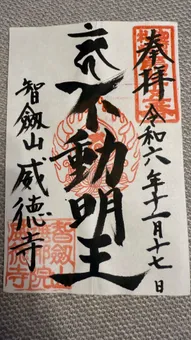 奉拝
令和六年十一月十七日
不動明王
智劔山
威徳寺